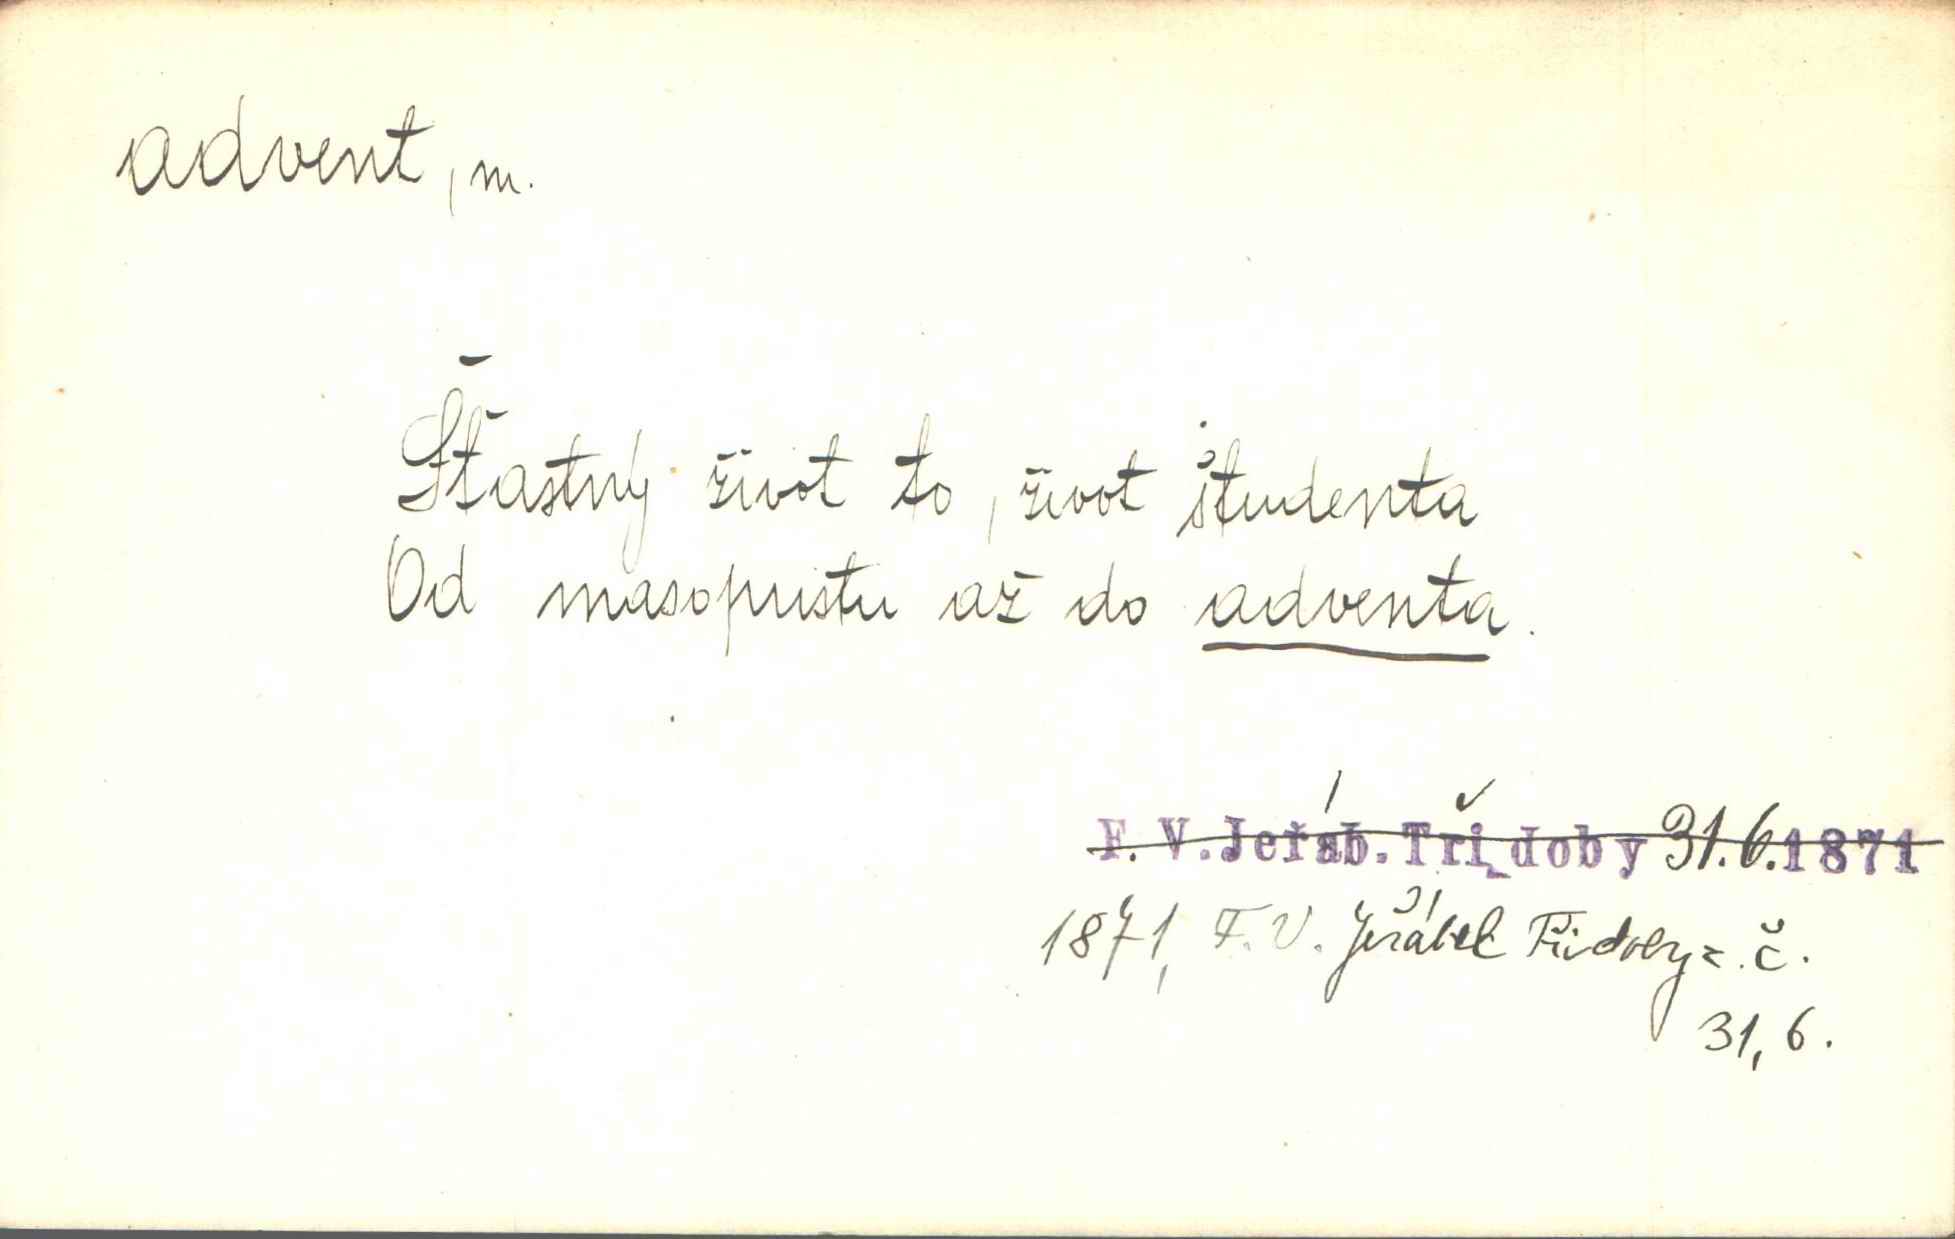 advent, m.
Šťastný život to, život študenta
Od masopustu až do adventa.
F. V. Jeřáb. Tři doby 31.6.1871
1871, F. V. Jeřábek Tři doby z. č.
31, 6.